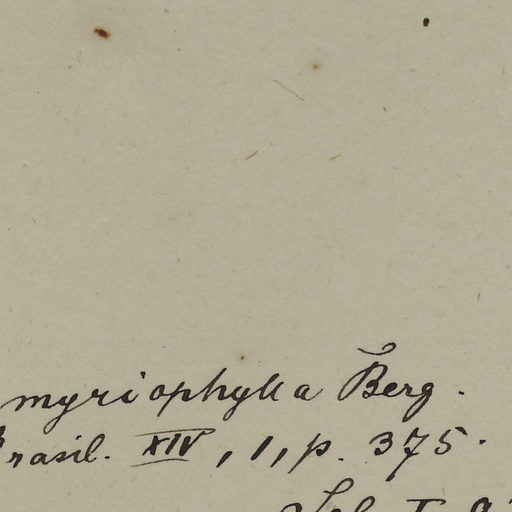 myriophylla Berg.
Brasil. XIV, 1, p. 375.